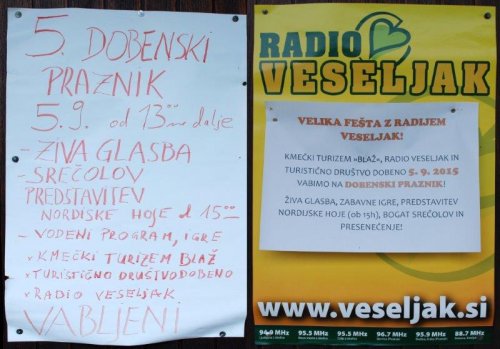 5. DOBENSKI
PRAZNIK
5.9. od 13⁰⁰ ne dalje
- ŽIVA GLASBA
- SREČOLOV
PREDSTAVITEV
NORDIJSKE HOJE od 15⁰⁰
- VODENI PROGRAM, IGRE
x KMEČKI TURIZEM BLAŽ
x TURISTIČNO DRUŠTVO DOBENO
x RADIO VESELJAK
VABLJENI
RADIO
VESELJAK
VELIKA FEŠTA Z RADIJEM
VESELJAK!
KMEČKI TURIZEM »BLAŽ«, RADIO VESELJAK IN
TURISTIČNO DRUŠTVO DOBENO 5. 9. 2015
VABIMO NA DOBENSKI PRAZNIK!
ŽIVA GLASBA, ZABAVNE IGRE, PREDSTAVITEV
NORDIJSKE HOJE (ob 15h), BOGAT SREČOLOV IN
PRESENEČENJE!
www.veseljak.si
94.9 MHz 95.5 MHz 95.5 MHz 96.7 MHz 95.9 MHz 88.7 MHz